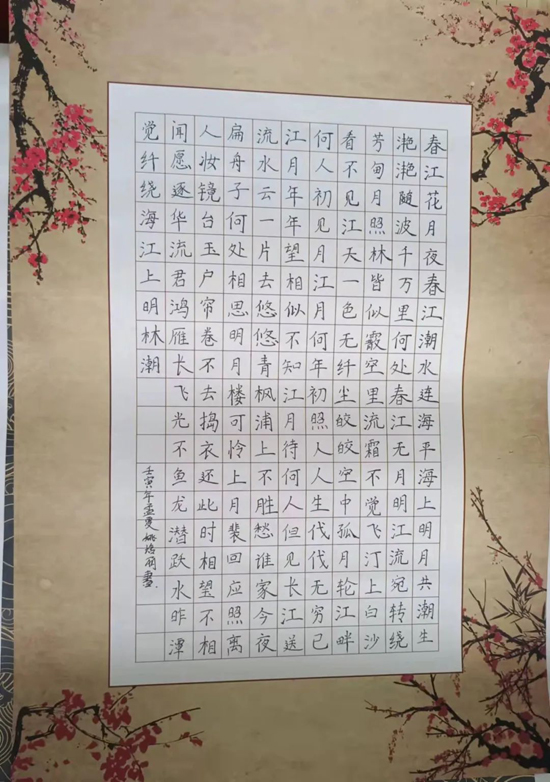 春江花月夜春江潮水连海平海上明月共潮生
滟滟随波千万里何处春江无月明江流宛转绕
芳甸月照林皆似霰空里流霜不觉飞汀上白沙
看不见江天一色无纤尘皎皎空中孤月轮江畔
何人初见月江月何年初照人人生代代无穷已
江月年年望相似不知江月待何人但见长江送
流水云一片去悠悠青枫浦上不胜愁谁家今夜
扁舟子何处相思明月楼可怜上月裴回应照离
人妆镜台玉户帘卷不去捣衣还此时相望不相
闻愿逐华流君鸿雁长飞光不鱼龙潜跃水昨潭
觉纤绕海江上明林潮
壬寅年孟夏姚